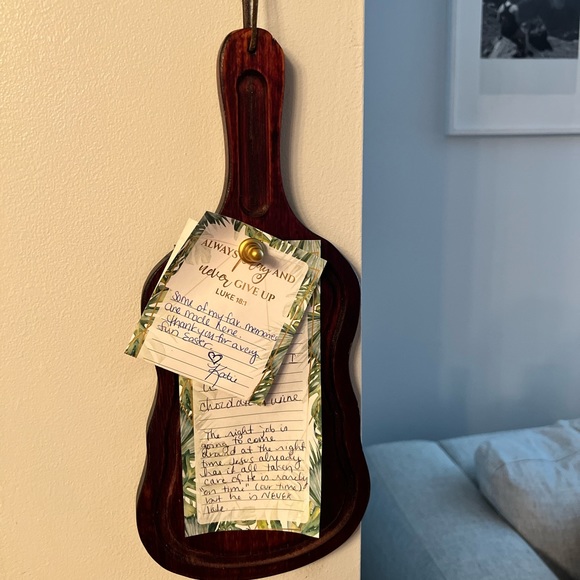 ALWAYS pray AND
never GIVE UP
LUKE 18:1
Some of my fav memories
are made here.
Thank you for a very
fun Easter.
♡ Katie
I
chocolate wine
The right job is
going to come
around at the right
time Jesus already
has it all taken
care of. He is rarely
"on time" (our time)
but he is NEVER
late